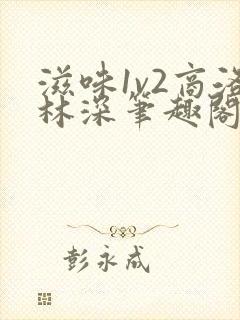 滋味1v2高洛
林深笔趣阁
彭永成